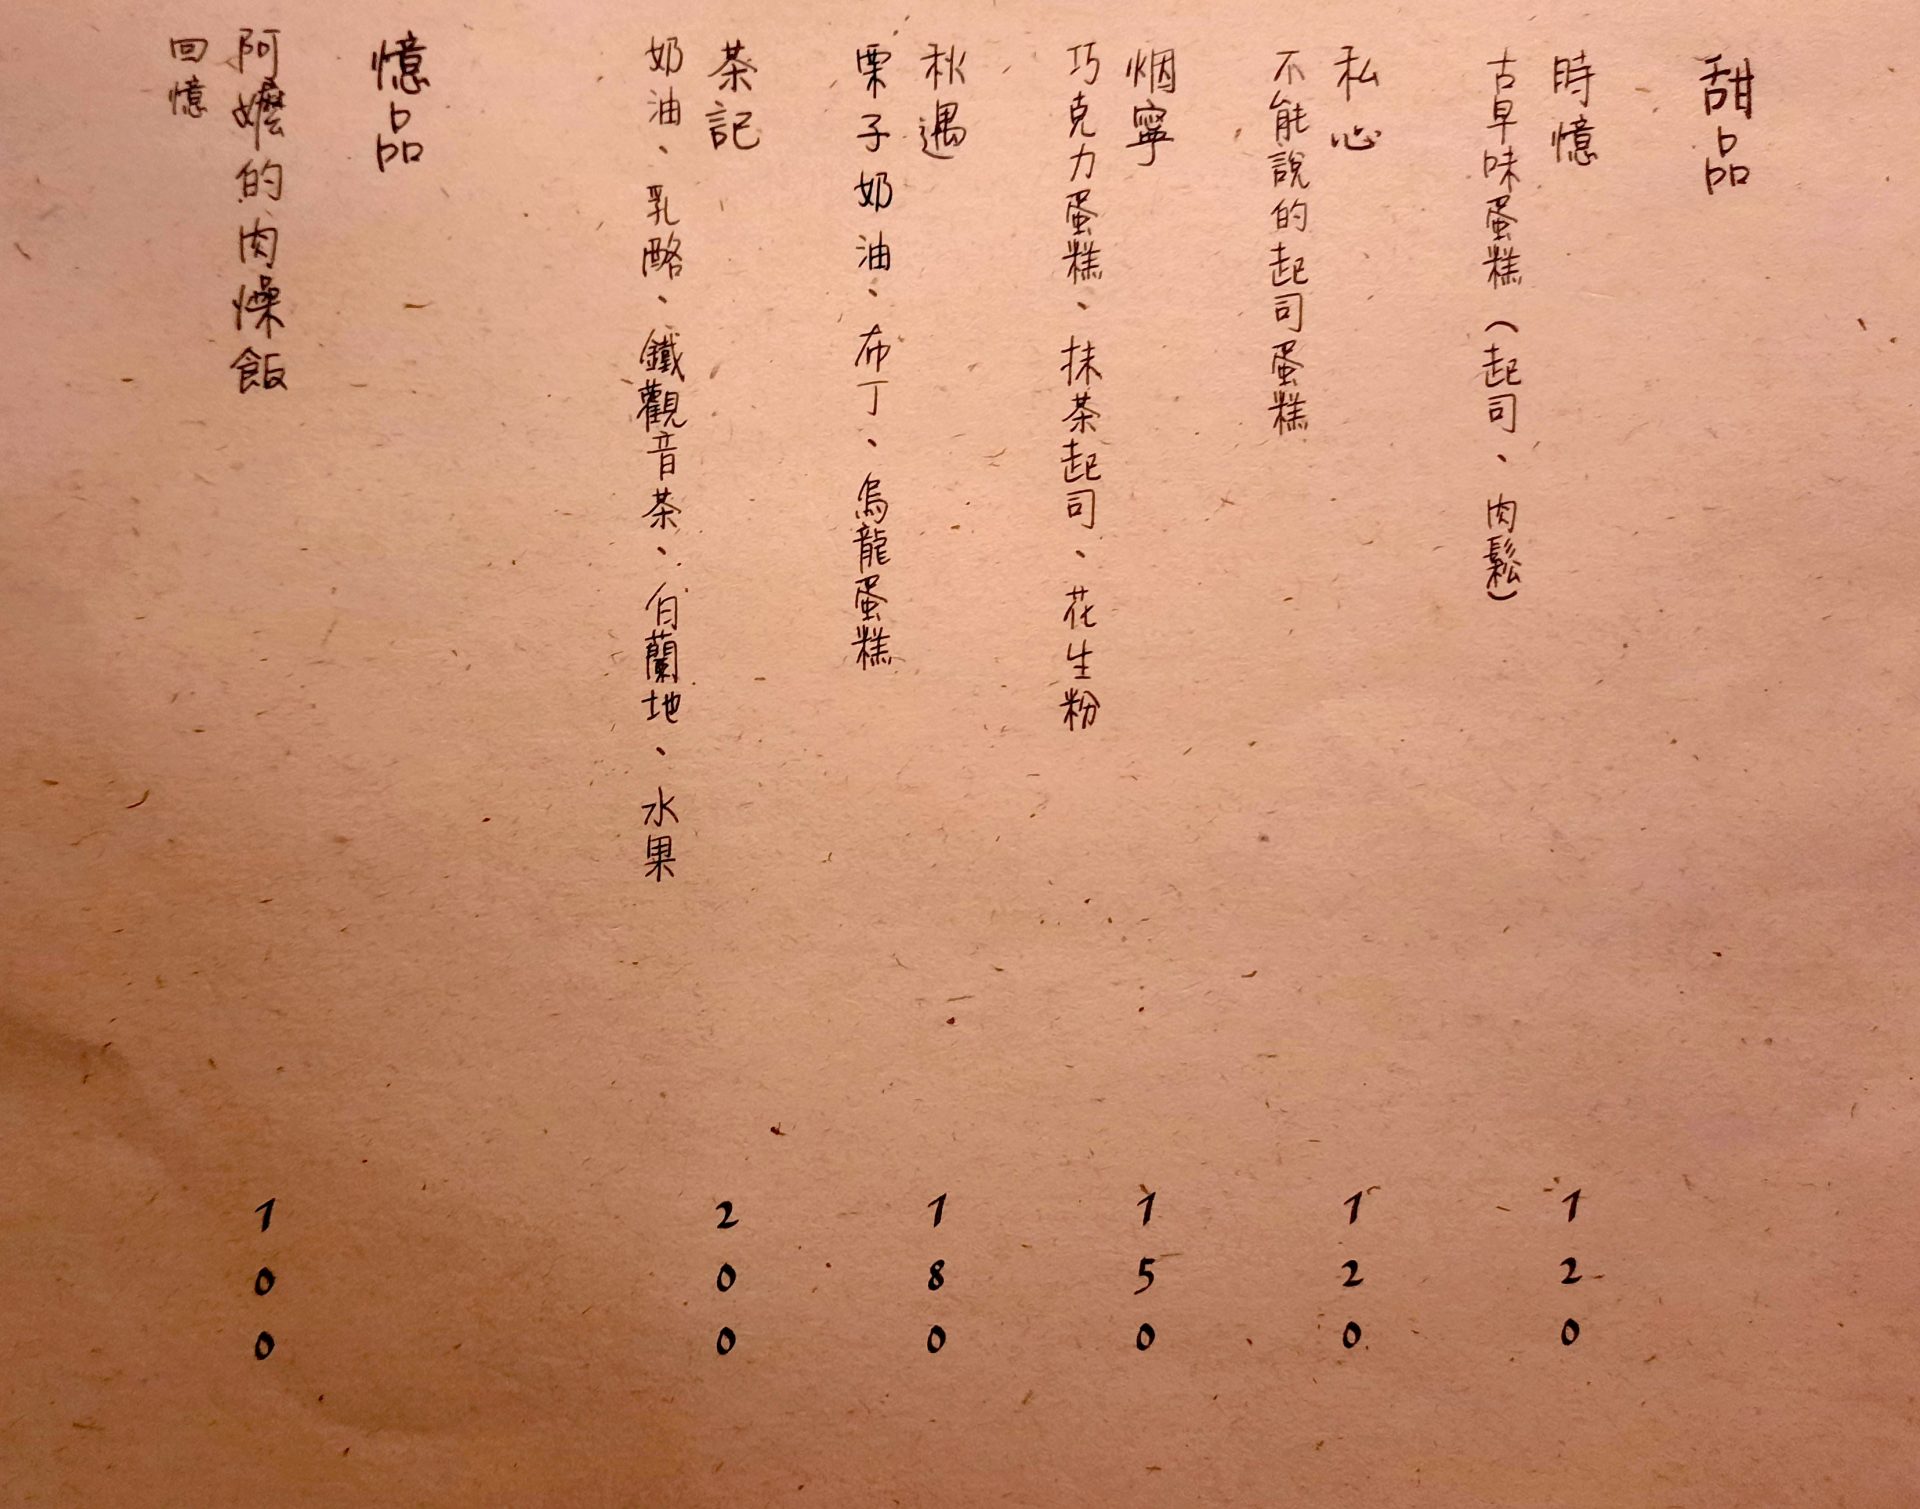 甜品
時憶
古早味蛋糕（起司、肉鬆）
120
私心
不能說的起司蛋糕
120
烟寧
巧克力蛋糕、抹茶起司、花生粉
150
秋遇
栗子奶油、布丁、烏龍蛋糕
180
茶記
奶油、乳酪、鐵觀音茶、白蘭地、水果
200
憶品
阿嬤的肉燥飯
100
回憶